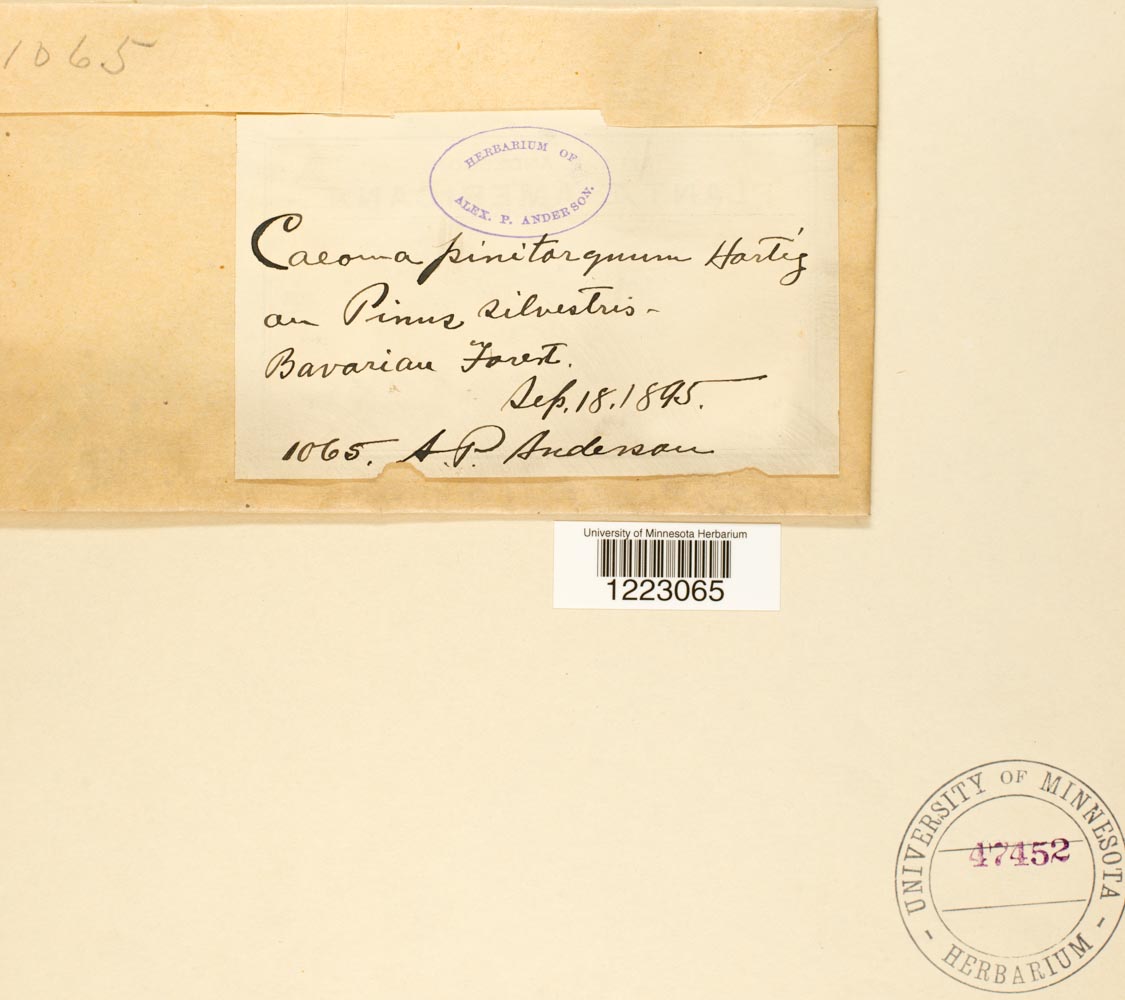 1065
HERBARIUM OF
ALEX. P. ANDERSON.
Caeoma pinitorquum Hartig
on Pinus silvestris-
Bavarian Forest.
Sep. 18. 1895.
1065. A. P. Anderson
University of Minnesota Herbarium
1223065
UNIVERSITY OF MINNESOTA
47452
- HERBARIUM -